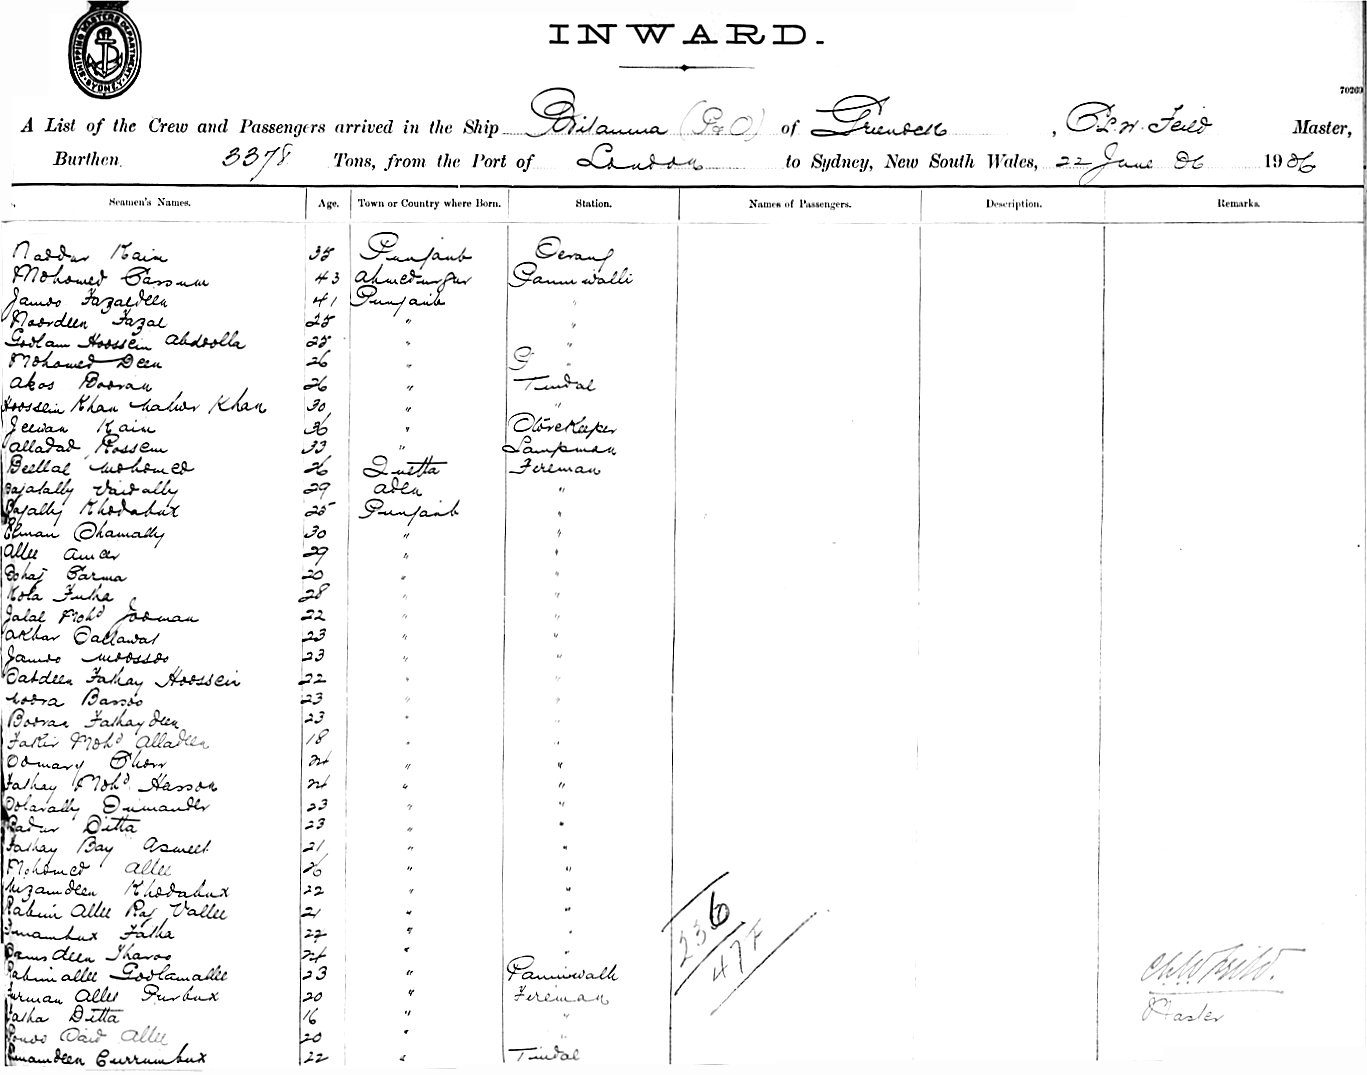 SHIPPING MASTERS DEPARTMENT SYDNEY
INWARD.
70269
A List of the Crew and Passengers arrived in the Ship Britannia (P&O) of Greenock, Master,
Burthen 3378 Tons, from the Port of London to Sydney, New South Wales, 22 June 86 1986
Seamen's Names. Age. Town or Country where Born. Station. Names of Passengers. Description. Remarks.
Naddar Kain 35 Punjaub Serang
Mohomed Cassum 43 Ahmednugur
Jamoo Fazaldeen 41 Punjaub "
Noordeen Fazal 25 " "
Goolam Hoossein Abdoolla 25 " "
Mohomed Deen 26 " G "
Akos Booran 26 " Tindal
Hoossein Khan Khan 30 " "
Jeewan Kain 36 " Storekeeper
Alladad Hossein 33 " Lampman
Beellal Mohomed 26 Quetta Fireman
Vaidally 29 Aden "
Khodabux 25 Punjaub "
Elman Shamally 30 " "
Allee Ameer 29 " "
Carma 20 " "
Kola Futha 28 " "
Jalal Mohd Jooman 22 " "
Akbar 23 " "
Jamoo Moossoo 23 " "
Fathay Hoossein 22 " "
Moora Bassoo 23 " "
Booran Fathaydeen 23 " "
Fakir Mohd Alladeen 18 " "
24 " "
Fathay Mohd Hasson 24 " "
23 " "
Ditta 23 " "
Fathay Bay 21 " "
Mohomed Allee 26 " "
Nizamdeen Khodabux 22 " "
Rahim Allee Raj Vallee 21 " "
Imambux Fatha 22 " "
24 "
Rahimallee Goolamallee 23 " Panniwalla
Furman Allee Purbux 20 " Fireman
Fatha Ditta 16 " "
Said Allee 20 " "
Imamdeen Currumbux 22 " Tindal
236
474
Master